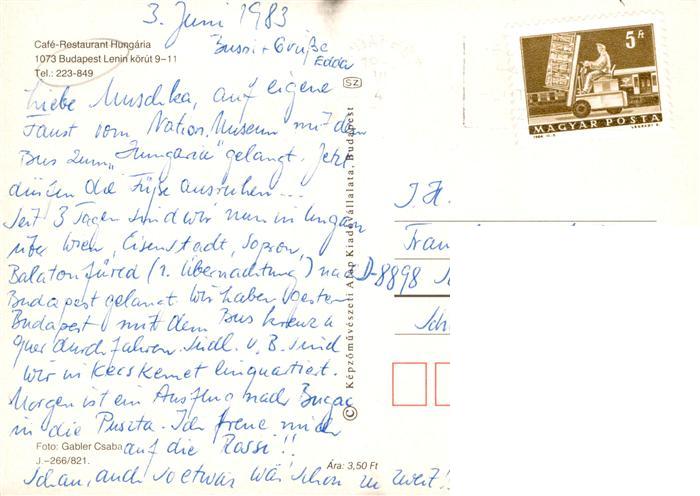 3. Juni 1983
Bussi + Grüße
Edda
Café-Restaurant Hungária
1073 Budapest Lenin körút 9–11
Tel.: 223-849
Liebe Muschka, auf eigene
Faust vom Nation. Museum mit dem
Bus zum "Hungaria" gelangt. Jetzt
dürfen die Füße ausruhen...
Seit 3 Tagen sind wir nun in Ungarn
über Wien, Eisenstadt, Sopron,
Balatonfüred (1. Übernachtung) nach
Budapest gelangt. Wir haben gestern
Budapest mit dem Bus kreuz u
quer durchfahren. Südl. v. B. sind
wir in Kecskemet einquartiert.
Morgen ist ein Ausflug nach Bugac
in die Puszta. Ich freue mich
auf die Rassi!!
Schau, auch so etwas wär schon zu zweit!
Foto: Gabler Csaba
J.–266/821.
Ára: 3,50 Ft
SZ
© Képzőművészeti Alap Kiadóvállalata, Budapest
5 Ft
MAGYAR POSTA
Fran
D-8898